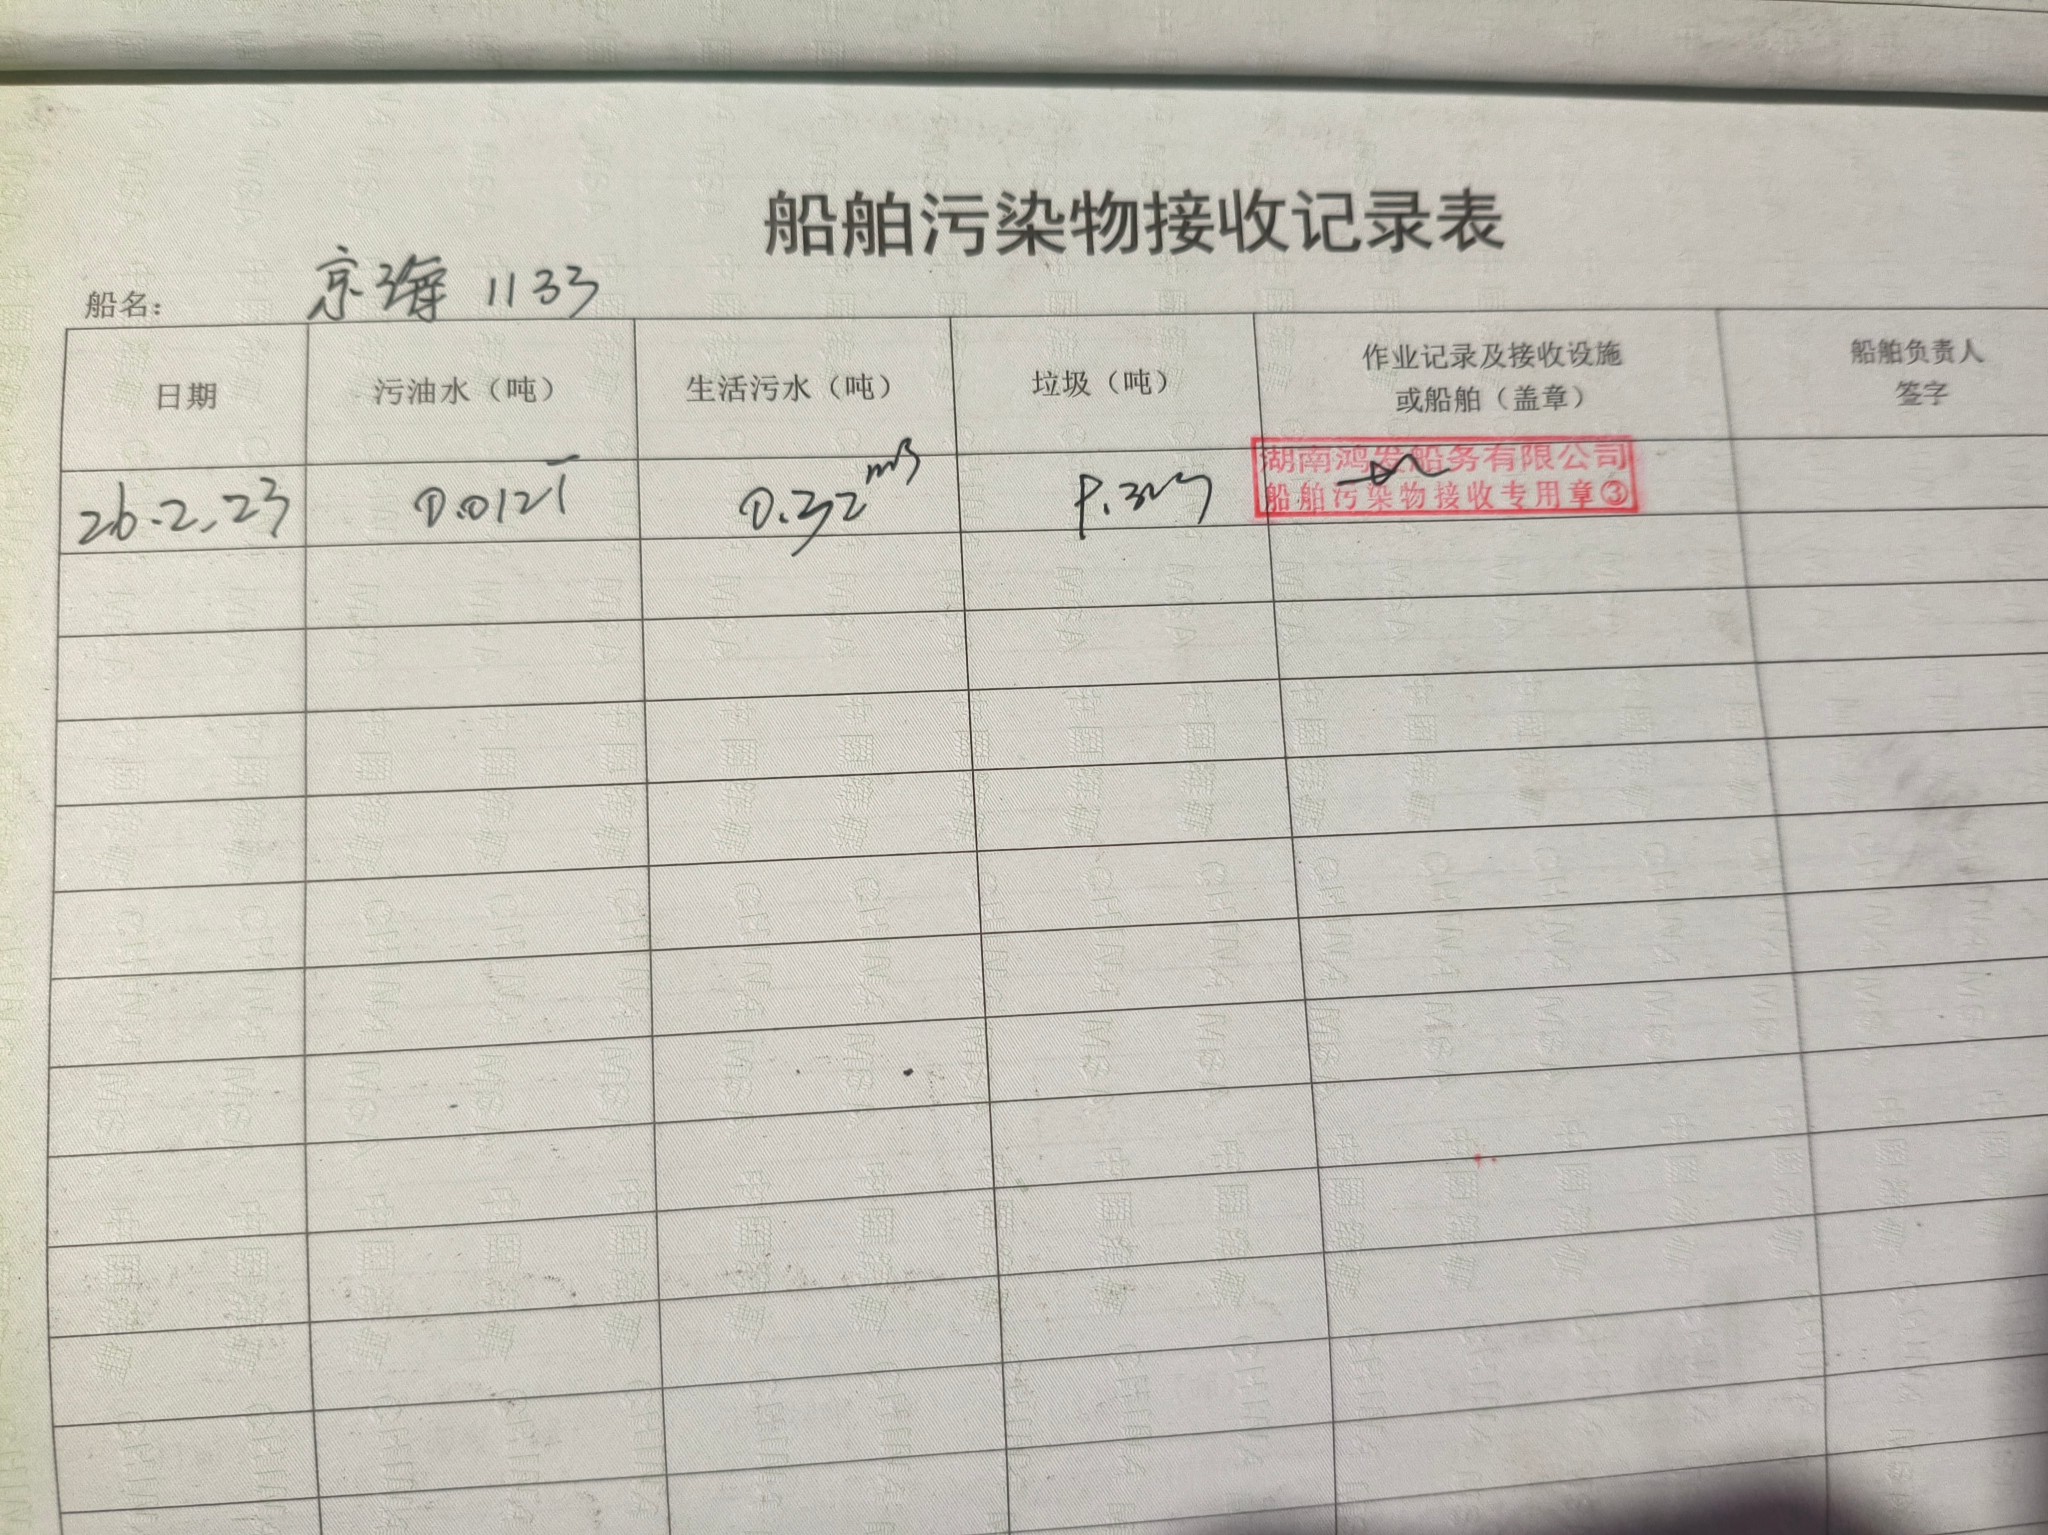 船舶污染物接收记录表
船名： 京海 1133
日期 污油水（吨） 生活污水（吨） 垃圾（吨） 作业记录及接收设施或船舶（盖章） 船舶负责人签字
26.2.23 0.012T 0.32m3
湖南鸿发船务有限公司
船舶污染物接收专用章③